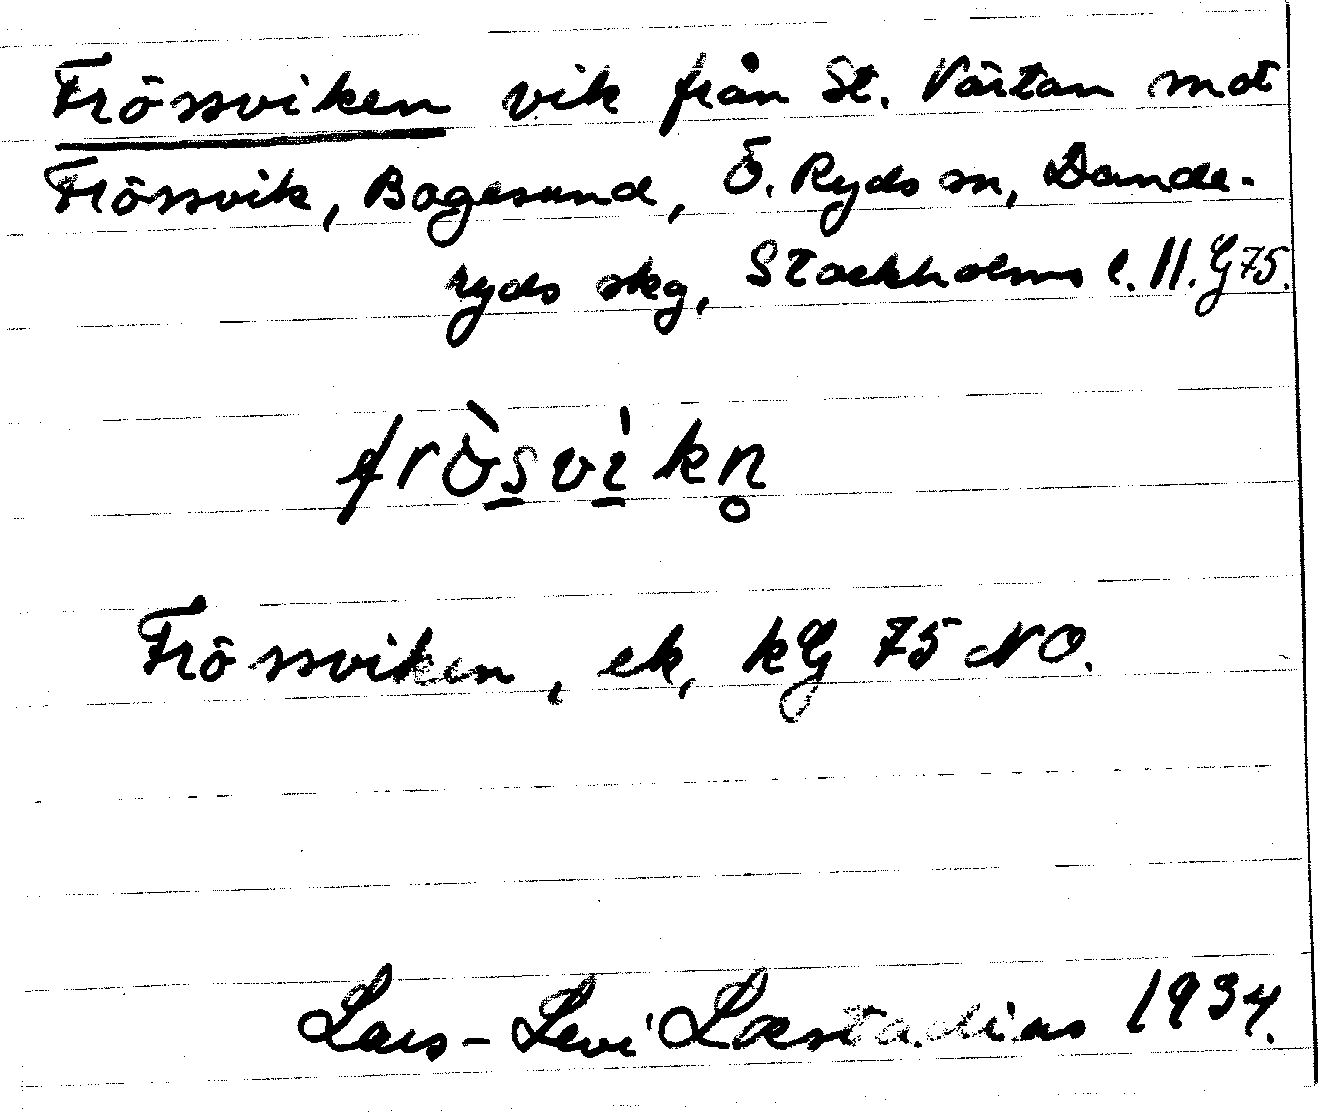 Frössviken vik från St. Värtan mot
Frössvik, Bogesund, Ö. Ryds sn, Dande-
ryds skg, Stockholms l. II. G 75.
frö̀svìkn̥
Frössviken, ek, kG 75 NO.
Lars-Levi Læstadius 1934.